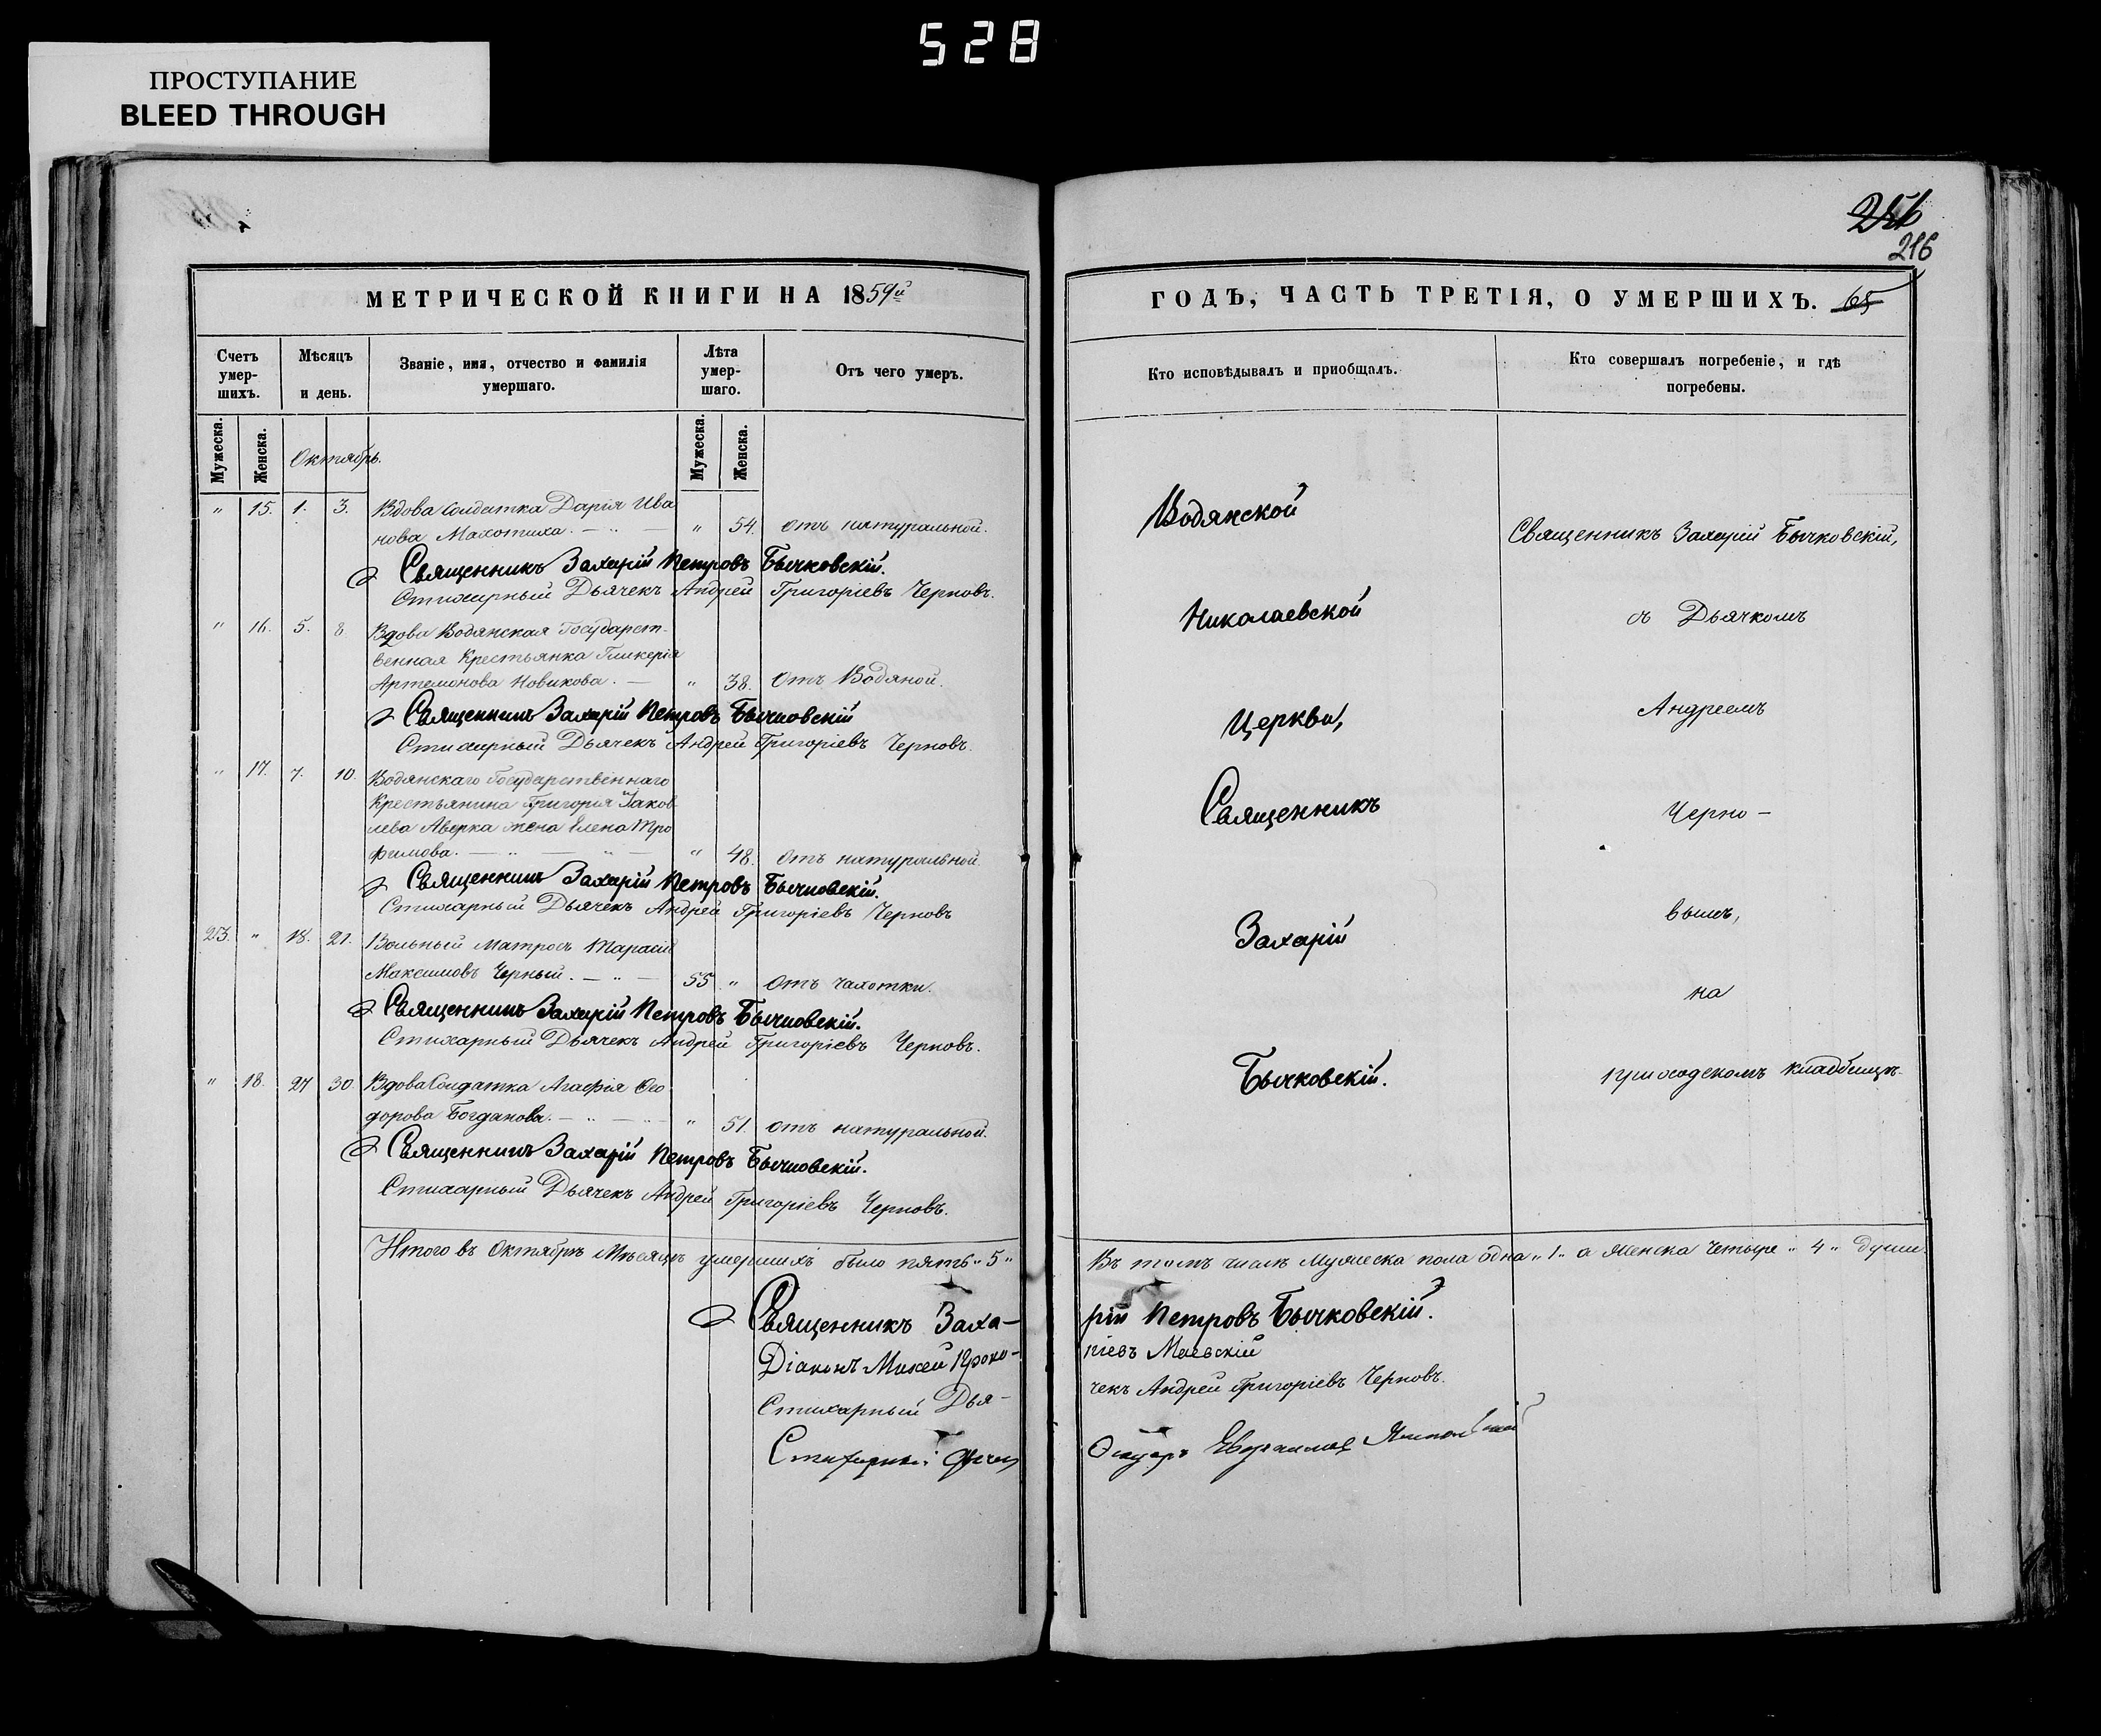 528
ПРОСТУПАНИЕ
BLEED THROUGH
216
МЕТРИЧЕСКОЙ КНИГИ НА 1859й
Счетъ умер-шихъ.
Мѣсяцъ и день.
Званіе, имя, отчество и фамилія умершаго.
Лѣта умер-шаго.
Отъ чего умеръ.
Мужеска. Женска. Октябрь. Мужеска. Женска.
" 15. 1. 3. Вдова Солдатка Дарія Ива
нова Махотиха. — " — " 54. отъ натуральной.
Священникъ Захарій Петровъ Бычковскій.
Стихарный Дьячекъ Андрей Григоріевъ Черновъ.
" 16. 5. 8. Вдова Водянская Государст-
венная Крестьянка Гликерія
Артемонова Новикова. — " 38. Отъ Водяной.
Священникъ Захарій Петровъ Бычковскій
Стихарный Дьячекъ Андрей Григоріевъ Черновъ.
" 17. 7. 10. Водянскаго Государственнаго
Крестьянина Григорія Іаков
лева Аверка жена Елена Тро
фимова. — " — " — " 48. отъ натуральной.
Священникъ Захарій Петровъ Бычковскій.
Стихарный Дьячекъ Андрей Григоріевъ Черновъ
23. " 18. 21. Вольный Матросъ Тарасій
Максимовъ Черный. — " — 55. " Отъ чахотки.
Священникъ Захарій Петровъ Бычковскій.
Стихарный Дьячекъ Андрей Григоріевъ Черновъ.
" 18. 27 30 Вдова Солдатка Агафія Ѳео
дорова Богданова. — " — " — " 51. отъ натуральной.
Священникъ Захарій Петровъ Бычковскій.
Стихарный Дьячекъ Андрей Григоріевъ Черновъ.
Итого въ Октябрѣ Мѣсяцѣ умершихъ было пять "5"
Священникъ Заха-
Діаконъ Михей Проко-
Стихарный Дья-
Стихарный
ГОДЪ, ЧАСТЬ ТРЕТІЯ, О УМЕРШИХЪ. 65
Кто исповѣдывалъ и пріобщалъ.
Кто совершалъ погребеніе, и гдѣ погребены.
Водянской
Николаевской
Церкви,
Священникъ
Захарій
Бычковскій.
Священникъ Захарій Бычковскій,
съ Дьячкомъ
Андреемъ
Черно-
вымъ,
на
приходскомъ кладбищѣ.
Въ томъ числѣ Мужеска пола одна "1" а Женска Четыре "4" души.
рій Петровъ Бычковскій.
піевъ Маевскій
чекъ Андрей Григоріевъ Черновъ.